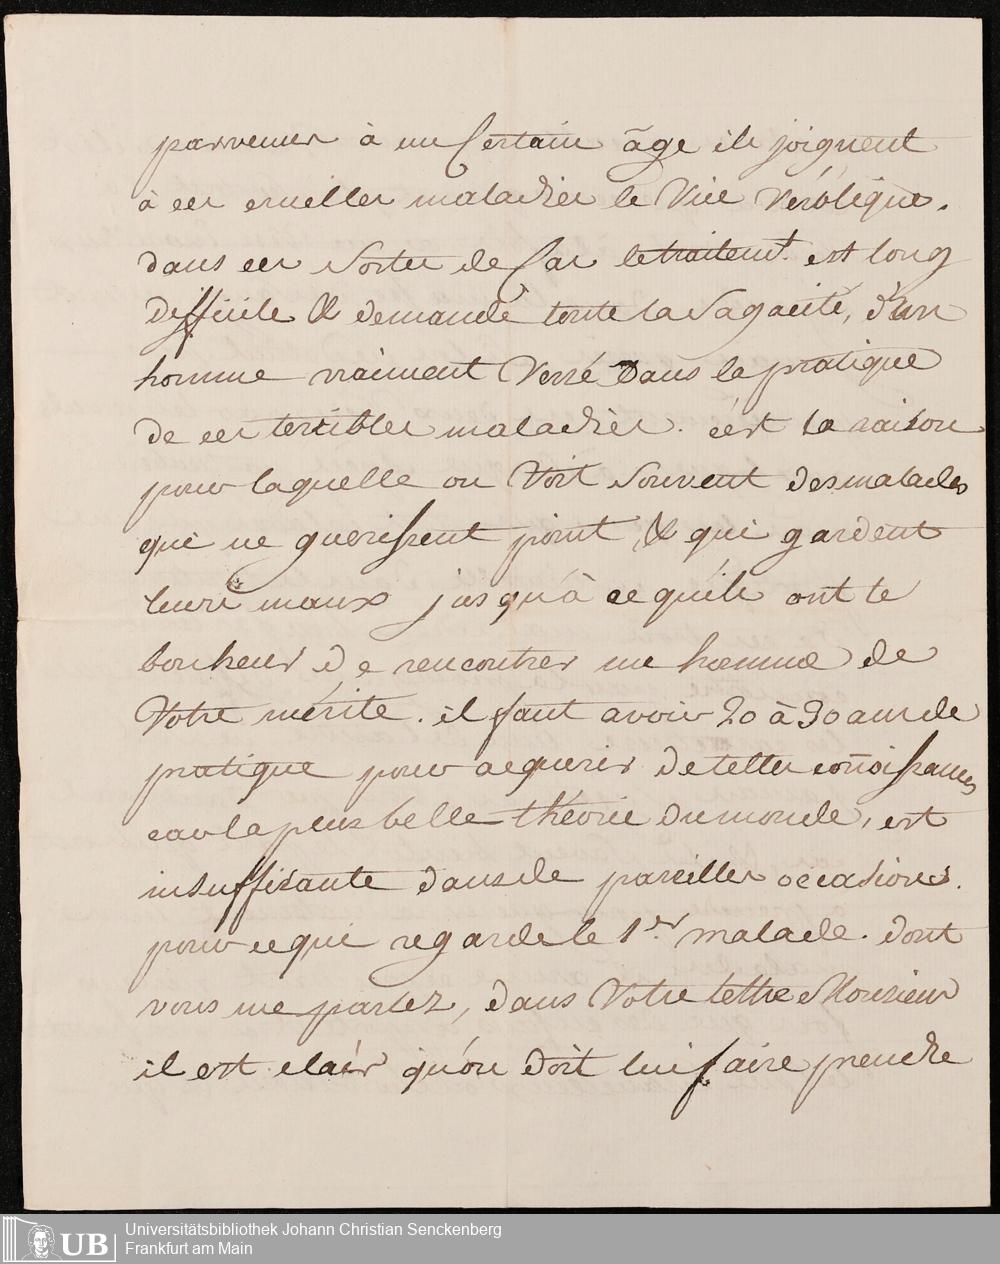 parvenus à un Certain âge ils joignent
à ces cruelles maladies le Vice Vérolique.
dans ces Sortes de Cas le traitemt. est long
difficile & demande toute la Sagacité, d'un
homme vraiment Versé Dans la pratique
de ces terribles maladies. c'est la raison
pour laquelle on Voit Souvent des malades
qui ne guerissent point, & qui gardent
leurs maux jusqu'à ce qu'ils ont le
bonheur de rencontrer un homme de
Votre mérite. il faut avoir 20 à 30 ans de
pratique pour acquerir de telles conoissances
car la plus belle théorie du monde, est
insuffisante dans de pareilles occasions.
pour ce qui regarde le 1er. malade. dont
vous me parlez, dans Votre lettre Monsieur
il est clair qu'on doit lui faire prendre
UB
Universitätsbibliothek Johann Christian Senckenberg
Frankfurt am Main